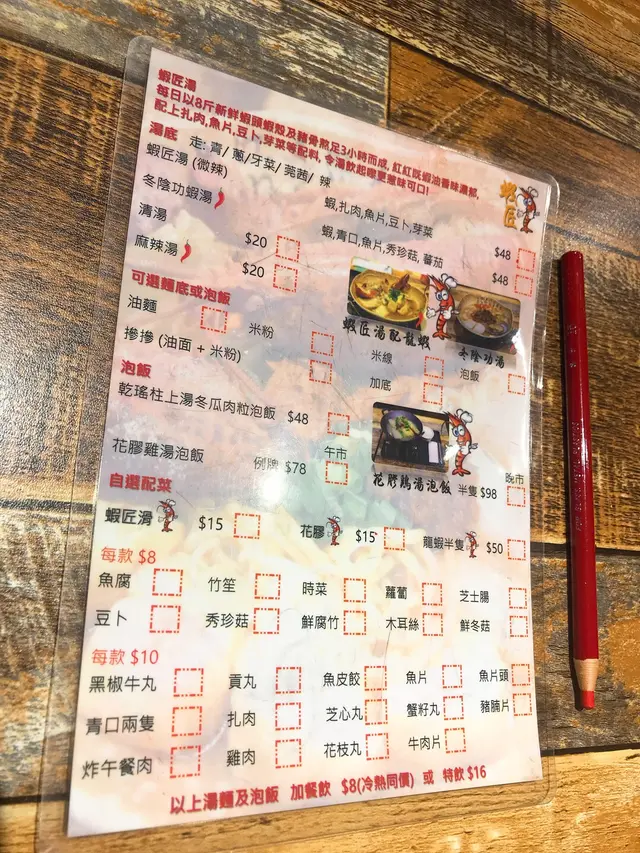 蝦匠湯
每日以8斤新鮮蝦頭蝦殼及豬骨熬足3小時而成, 紅紅既蝦油香味濃郁,
配上扎肉,魚片,豆卜,芽菜等配料, 令湯飲起嚟更惹味可口!
蝦匠
湯底 走: 青/ 蔥/牙菜/ 莞茜/ 辣
蝦匠湯 (微辣) 蝦,扎肉,魚片,豆卜,芽菜 $48
冬陰功蝦湯 蝦,青口,魚片,秀珍菇, 蕃茄 $48
清湯 $20
麻辣湯 $20
蝦匠湯配龍蝦
冬陰功湯
可選麵底或泡飯
油麵 米粉 米線 泡飯
摻摻 (油面 + 米粉) 加底
泡飯
乾瑤柱上湯冬瓜肉粒泡飯 $48
花膠雞湯泡飯 例牌 $78 午市 半隻 $98 晚市
花膠鷄湯泡飯
自選配菜
蝦匠滑 $15 花膠 $15 龍蝦半隻 $50
每款 $8
魚腐 竹笙 時菜 蘿蔔 芝士腸
豆卜 秀珍菇 鮮腐竹 木耳絲 鮮冬菇
每款 $10
黑椒牛丸 貢丸 魚皮餃 魚片 魚片頭
青口兩隻 扎肉 芝心丸 蟹籽丸 豬腩片
炸午餐肉 雞肉 花枝丸 牛肉片
以上湯麵及泡飯 加餐飲 $8(冷熱同價) 或 特飲 $16